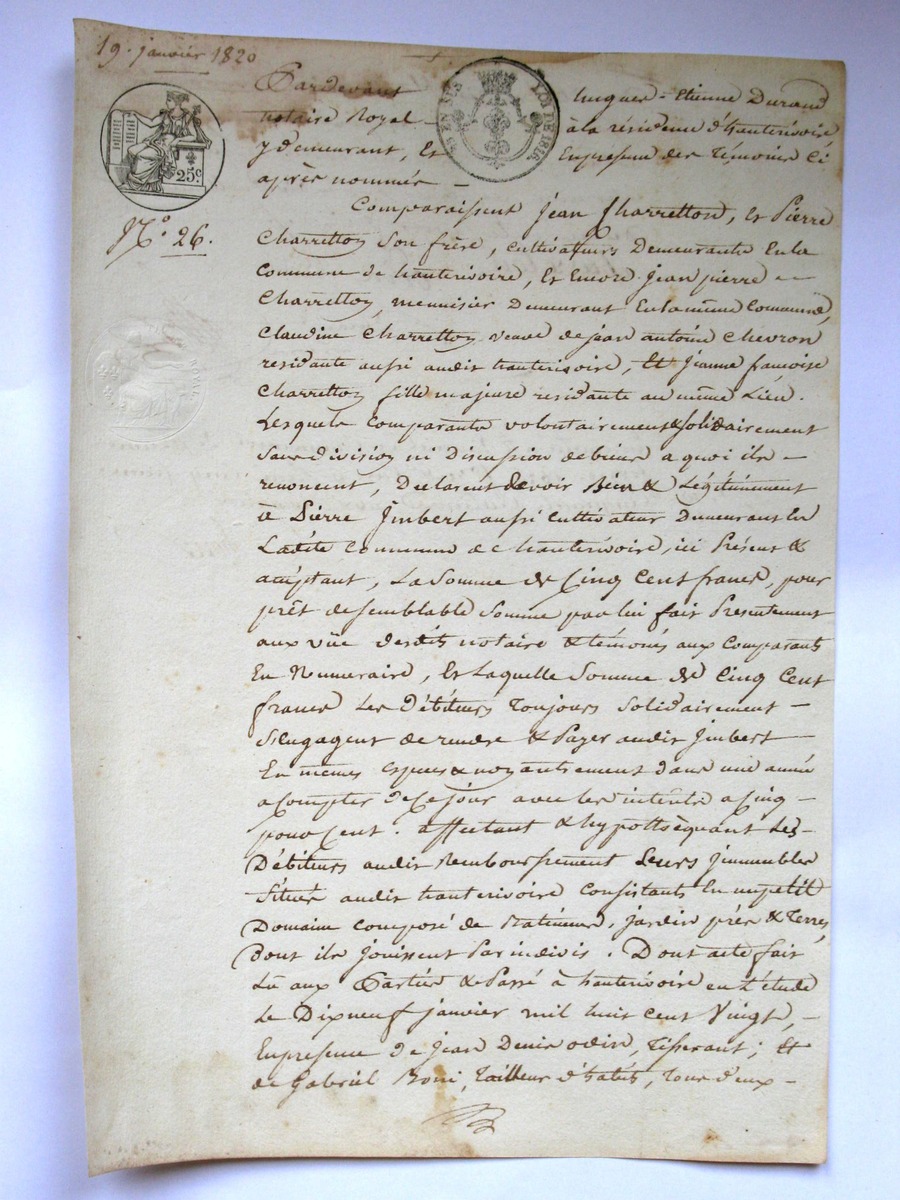 19. janvier 1820
Pardevant hugues - Etienne Durand
notaire Royal - à la résidence d'hauterivoire
y demeurant, Et En présence des Témoins Ci
après nommés -
25c
LOI DE
N.° 26.
Comparaissent Jean Charretton, Et Pierre
Charretton Son frère, cultivateurs Demeurants En la
Commune de hauterivoire, Et Encore Jean pierre -
Charretton, menuisier Demeurant En la même Commune,
Claudine Charretton veuve de jean antoine Chevron
residante aussi audit hauterivoire, Et Jeanne francoise
Charretton fille majeure residante au même Lieu.
Lesquels Comparants volontairement & solidairement
Sans division ni Discussion de biens a quoi ils -
renoncent, Declarent devoir Bien & Légitimement
à Pierre Jmbert aussi Cultivateur Demeurant En
Ladite Commune de hauterivoire, ici Présent &
acceptant, La Somme de Cinq Cent francs, pour
prêt de semblable Somme par lui fait Presentement
aux vüe desdits notaire & témoins aux Comparants
En Numeraire, Et Laquelle Somme de Cinq Cent
francs Les Débiteurs Toujours Solidairement -
S'Engagent de rendre & Payer audit Jmbert
En mêmes Especes & non autrement dans une année
a Compter de Ce jour avec les intérêts a Cinq -
pour Cent. affectant & hypothèquant Les
Débiteurs audit Remboursement Leurs Jmmeubles
Situés audit hauterivoire Consistants En un petit
Domaine Composé de Batiments, jardin prés & Terres
dont ils jouissent Par indivis. Dont acte fait
Lû aux Parties & Passé à hauterivoire en L'étude
Le Dix neuf janvier mil huit cent Vingt, -
En présence de Jean Denis odin, Tisserant; Et
de Gabriel Tailleur d'habits, Tous d'eux -